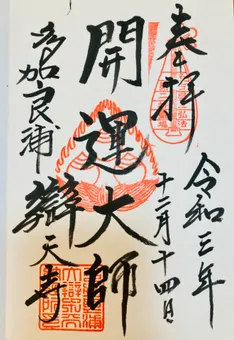 奉拝
令和三年
十二月十四日
開運大師
多加良浦
辯天寺